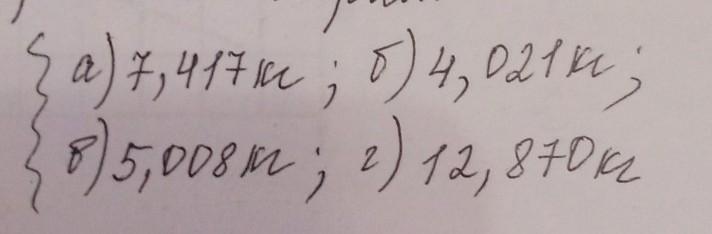 а) 7,417кг; б) 4,021кг;
в) 5,008кг; г) 12,870кг